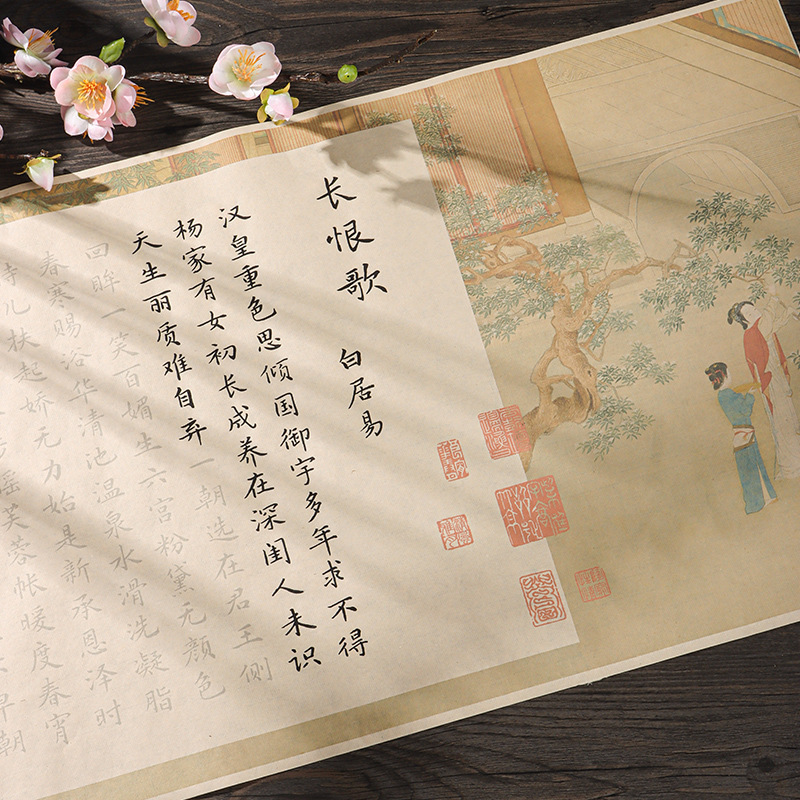 长恨歌 白居易
汉皇重色思倾国御宇多年求不得
杨家有女初长成养在深闺人未识
天生丽质难自弃一朝选在君王侧
回眸一笑百媚生六宫粉黛无颜色
春寒赐浴华清池温泉水滑洗凝脂
侍儿扶起娇无力始是新承恩泽时
摇芙蓉帐暖度春宵
早朝